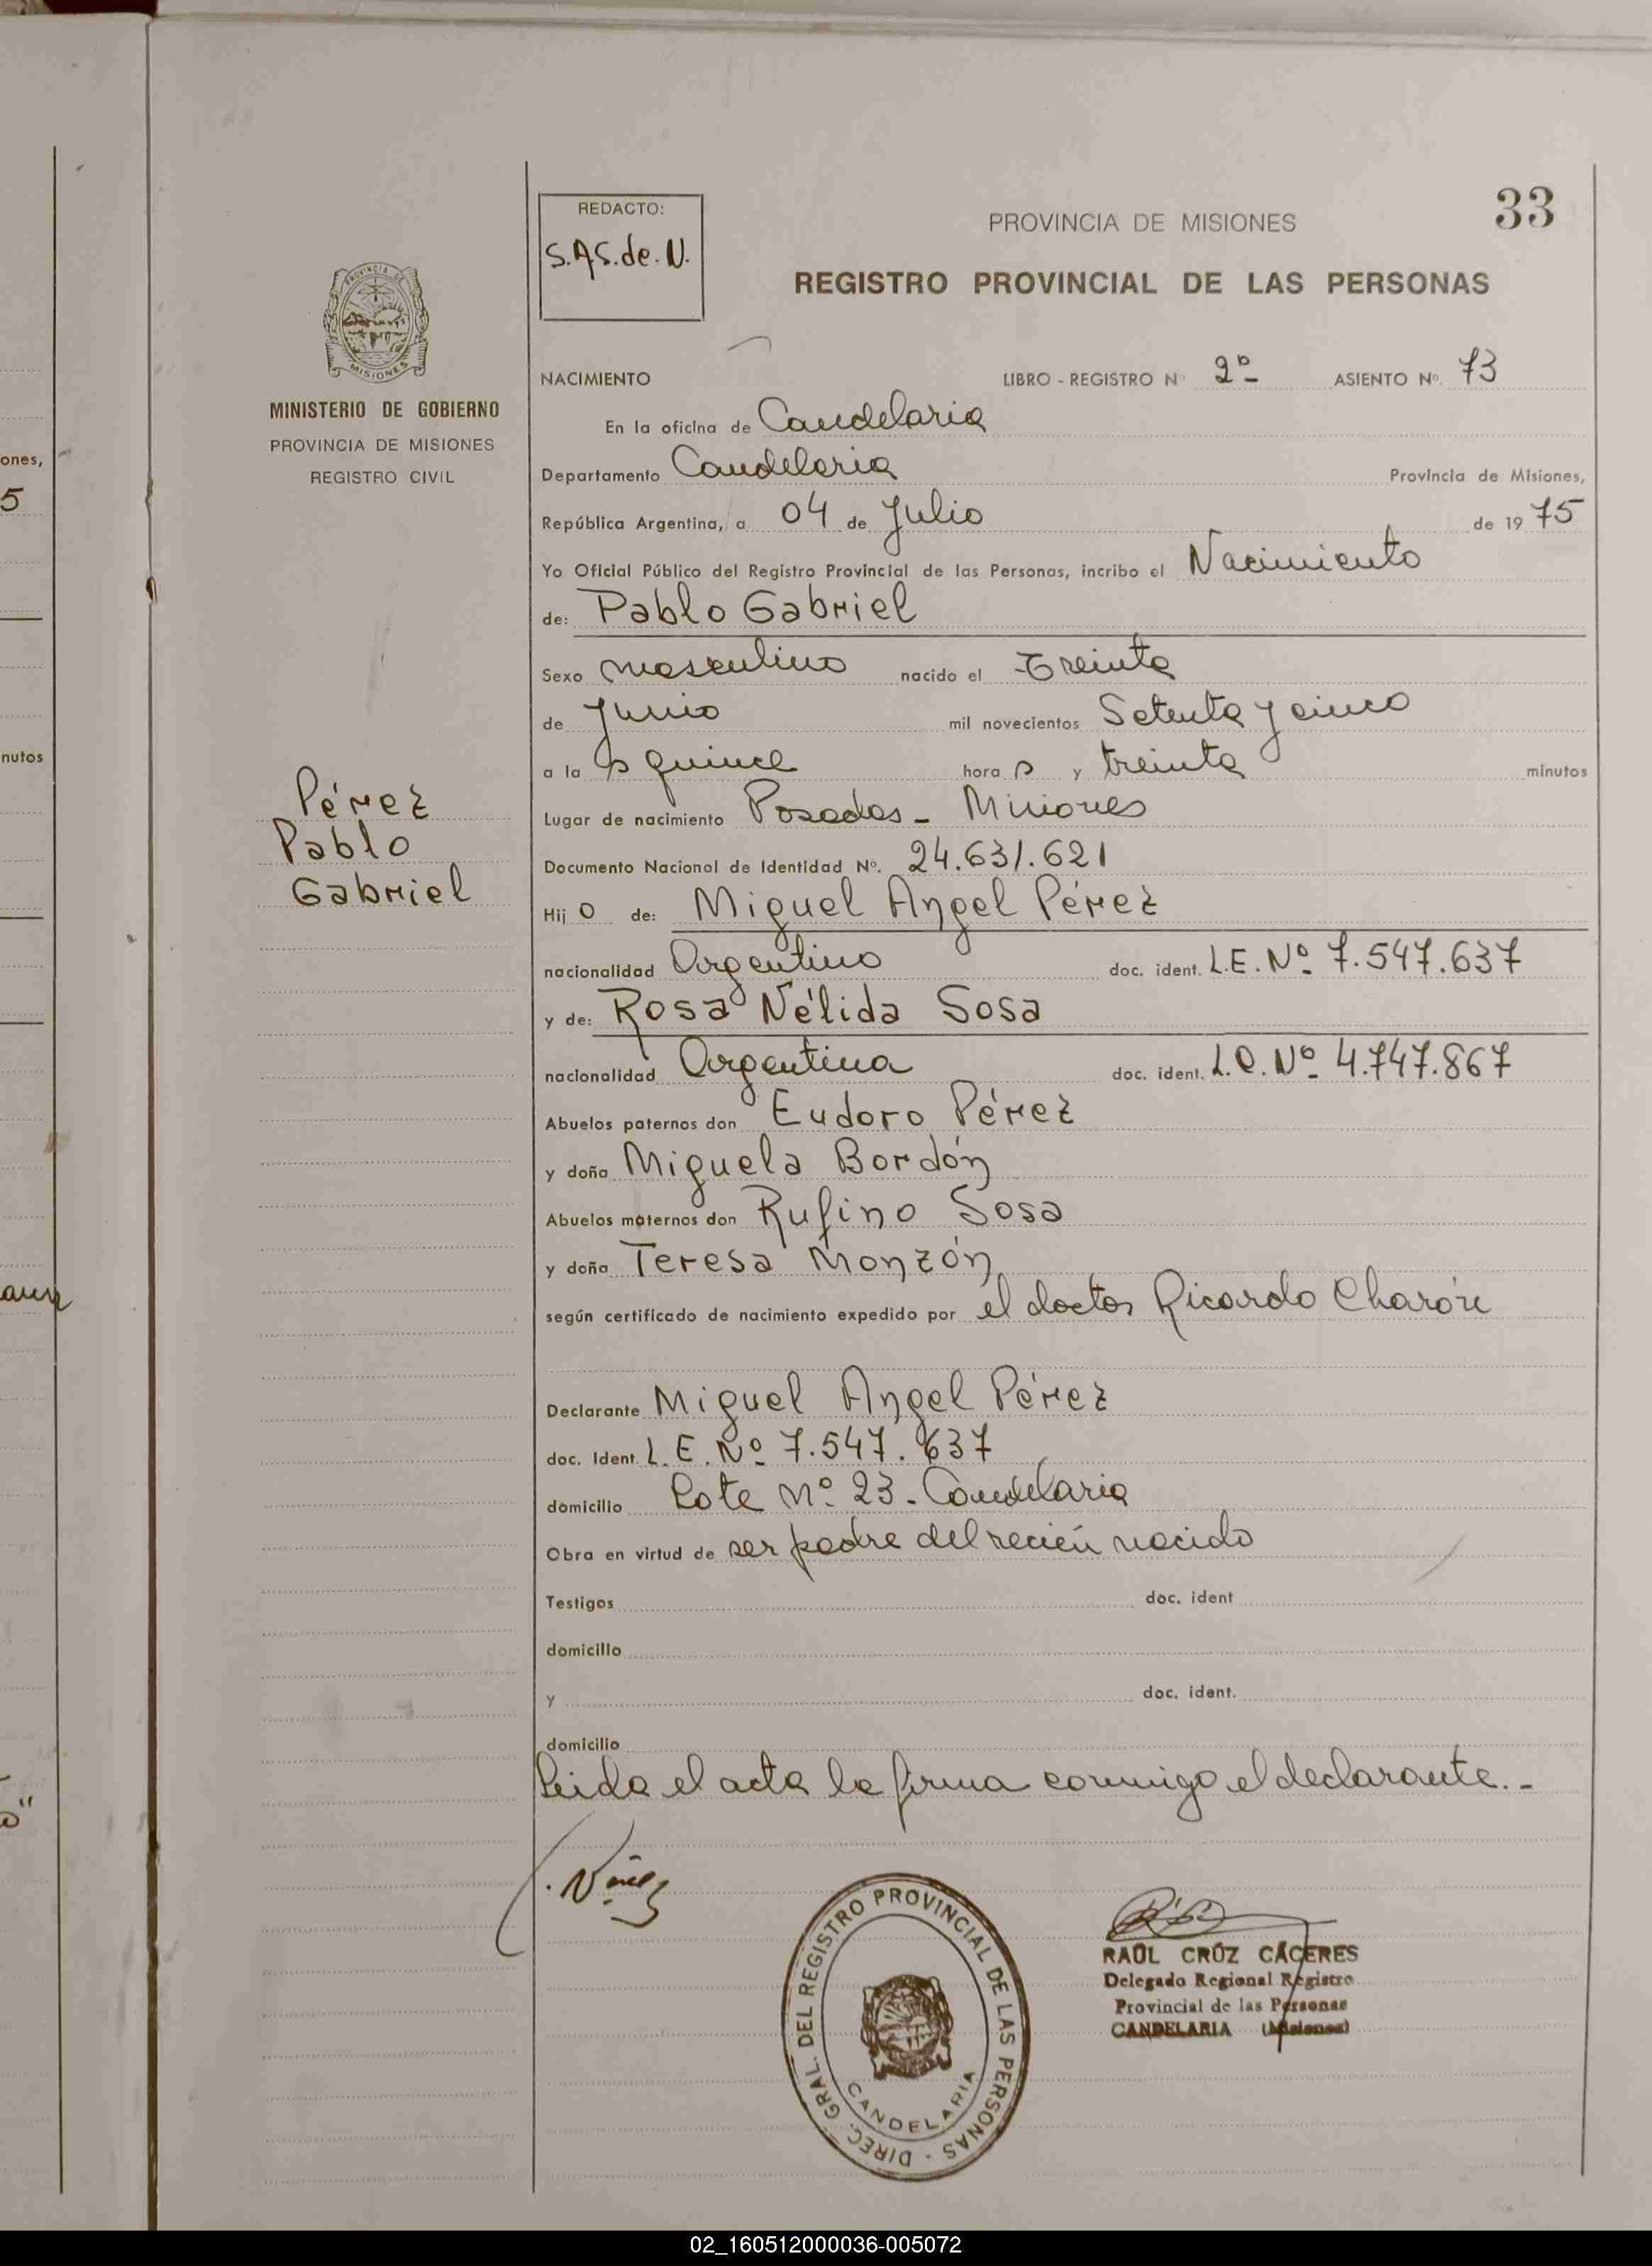 ones,
5
nutos
REDACTO:
S.A.S. de. N.
PROVINCIA DE MISIONES
33
REGISTRO PROVINCIAL DE LAS PERSONAS
PROVINCIA DE
MISIONES
MINISTERIO DE GOBIERNO
PROVINCIA DE MISIONES
REGISTRO CIVIL
NACIMIENTO LIBRO - REGISTRO Nº 2º ASIENTO Nº. 73
En la oficina de Candelaria
Departamento Candelaria Provincia de Misiones,
República Argentina, a 04 de Julio de 1975
Yo Oficial Público del Registro Provincial de las Personas, incribo el Nacimiento
de: Pablo Gabriel
Sexo masculino nacido el Treinta
de Junio mil novecientos Setenta y cinco
a la s quince hora s y treinta minutos
Pérez
Pablo
Gabriel
Lugar de nacimiento Posadas - Misiones
Documento Nacional de Identidad Nº. 24.631.621
Hij o de: Miguel Angel Pérez
nacionalidad Argentino doc. ident. L.E. Nº 7.547.637
y de: Rosa Nélida Sosa
nacionalidad Argentina doc. ident. L.C. Nº 4.747.867
Abuelos paternos don Eudoro Pérez
y doña Miguela Bordón
Abuelos maternos don Rufino Sosa
y doña Teresa Monzón
según certificado de nacimiento expedido por el doctor Ricardo Charón
Declarante Miguel Angel Pérez
doc. Ident. L.E. Nº 7.547.637
domicilio Lote nº 23 - Candelaria
Obra en virtud de ser padre del recién nacido
Testigos doc. ident
domicilio
y doc. ident.
domicilio
Leida el acta la firma conmigo el declarante.-
DIREC. GRAL. DEL REGISTRO PROVINCIAL DE LAS PERSONAS -
CANDELARIA
RAÚL CRÚZ CÁCERES
Delegado Regional Registro
Provincial de las Personas
CANDELARIA (Misiones)
02_160512000036-005072